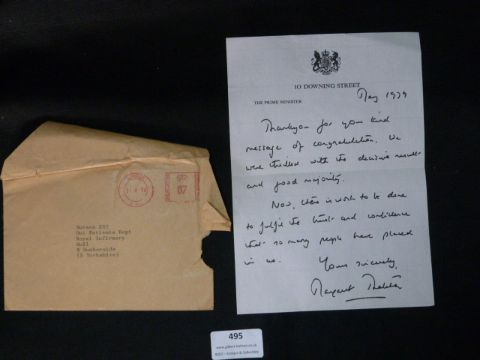 10 DOWNING STREET
May 1979
THE PRIME MINISTER
Thankyou for your kind
message of congratulation. We
were thrilled with the decisive result
and good majority.
Now, there is work to be done
to fulfil the trust and confidence
that so many people have placed
in us.
Yours sincerely,
Margaret Thatcher
07
Out Patients Dept
Royal Infirmary
Hull
N Humberside
(E Yorkshire)
495